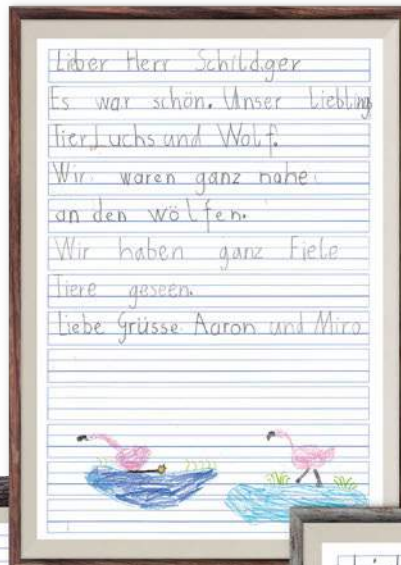 Lieber Herr Schildger
Es war schön. Unser liebling
Tier Luchs und Wolf.
Wir waren ganz nahe
an den wölfen.
Wir haben ganz Fiele
Tiere geseen.
Liebe Grüsse Aaron und Miro